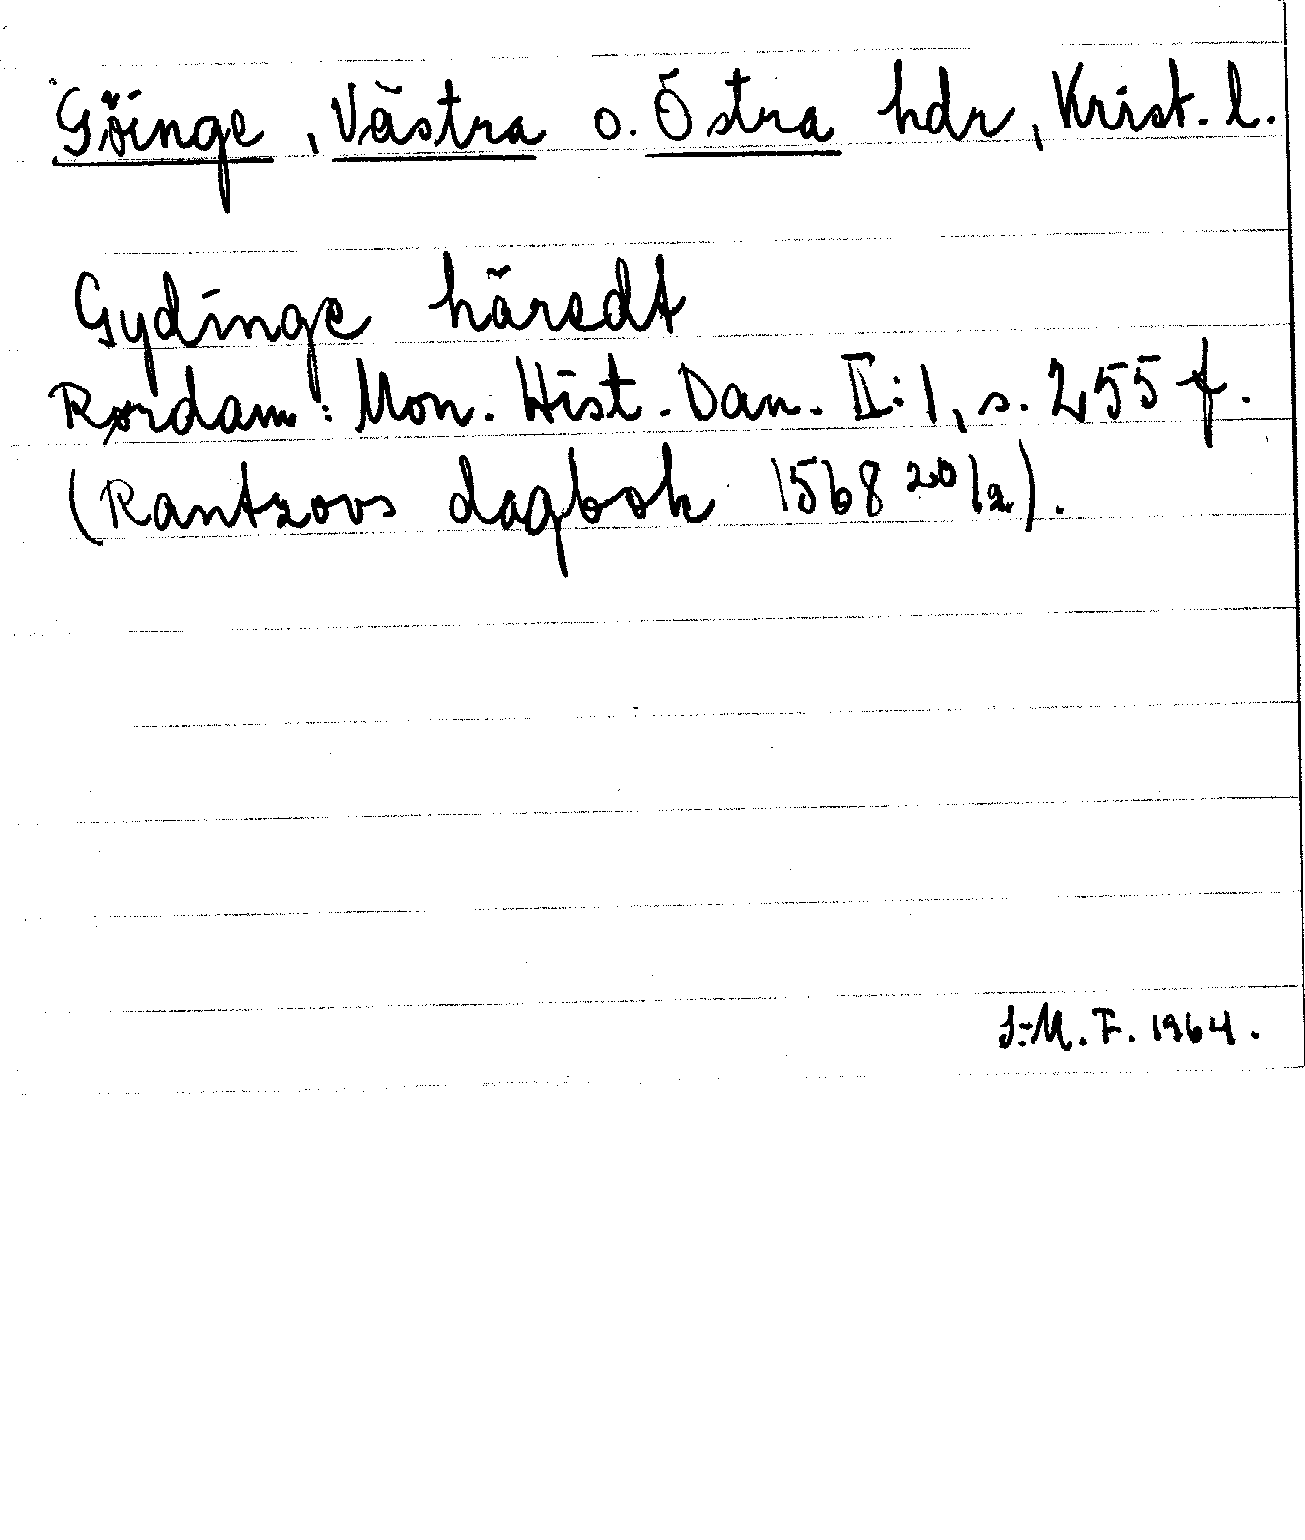 Göinge, Västra o. Östra hdr, Krist. l.
Gydinge häredt
Rørdam: Mon. Hist. Dan. II:1, s. 255 f.
(Rantzovs dagbok 1568 20/2).
J-M. F. 1964.